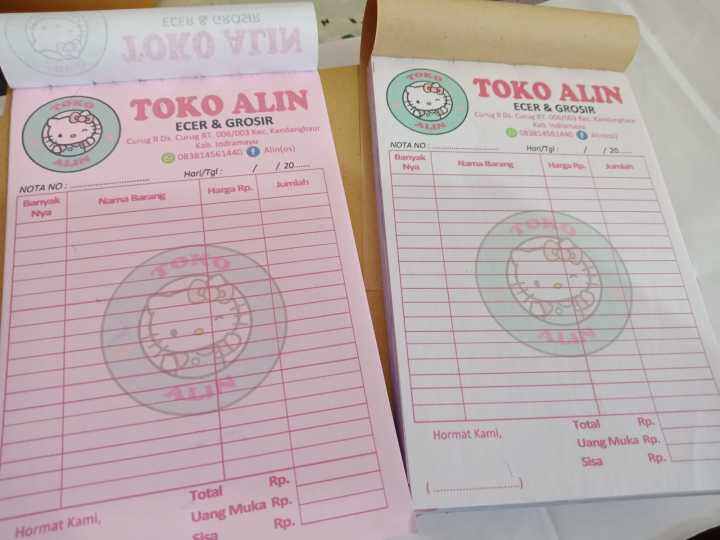 ECER & GROSIR
TOKO ALIN
TOKO
ALIN
TOKO ALIN
ECER & GROSIR
Curug B Ds. Curug RT. 006/003 Kec. Kandanghaur
Kab. Indramayu
083814561440 Alin(os)
NOTA NO : ........................ Hari/Tgl : / / 20......
Banyak Nya Nama Barang Harga Rp. Jumlah
TOKO
ALIN
Hormat Kami,
Total Rp.
Uang Muka Rp.
Sisa Rp.
TOKO
ALIN
TOKO ALIN
ECER & GROSIR
Curug B Ds. Curug RT. 006/003 Kec. Kandanghaur
Kab. Indramayu
083814561440 Alin(os)
NOTA NO : ........................ Hari/Tgl : / / 20......
Banyak Nya Nama Barang Harga Rp. Jumlah
TOKO
ALIN
Hormat Kami,
Total Rp.
Uang Muka Rp.
Sisa Rp.
(..............................)